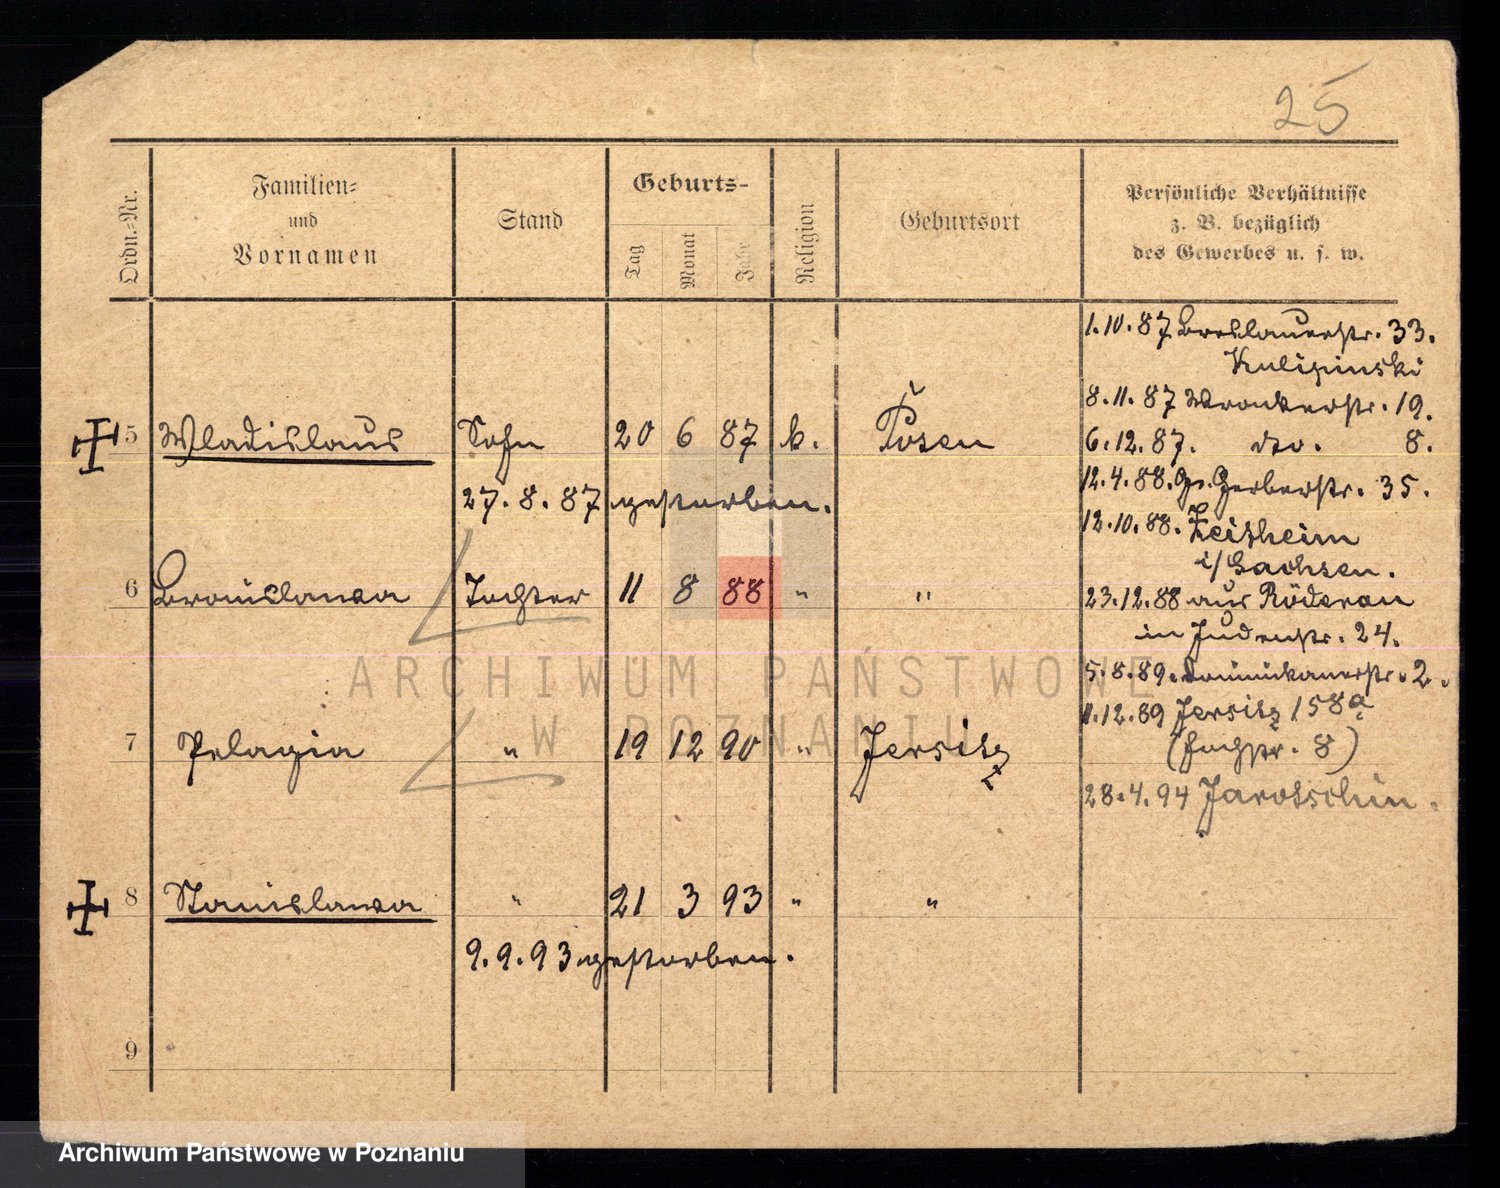 25
Ordn.-Nr.
Familien-
und
Vornamen
Stand
Geburts-
Tag
Monat
Jahr
Religion
Geburtsort
Persönliche Verhältnisse
z. B. bezüglich
des Gewerbes u. s. w.
1.10.87 Breslauerstr. 33.
8.11.87 Wronkerstr. 19.
5 Wladislaus Sohn 20 6 87 k. Posen
6.12.87. dto. 8.
27.8.87 gestorben.
12.4.88. Gr. Gerberstr. 35.
12.10.88. Zeitheim
i/Sachsen.
6 Bronislawa Tochter 11 8 88 " "
23.12.88 aus Röderau
in Judenstr. 24.
5.8.89. Dominikanerstr. 2.
11.12.89 Jersitz 158a
7 Pelagia " 19 12 90 " Jersitz
(Hochstr. 8)
28.4.94 Jarotschin.
8 Stanislawa " 21 3 93 " "
9.9.93 gestorben.
9
ARCHIWUM PAŃSTWOWE
W POZNANIU
Archiwum Państwowe w Poznaniu